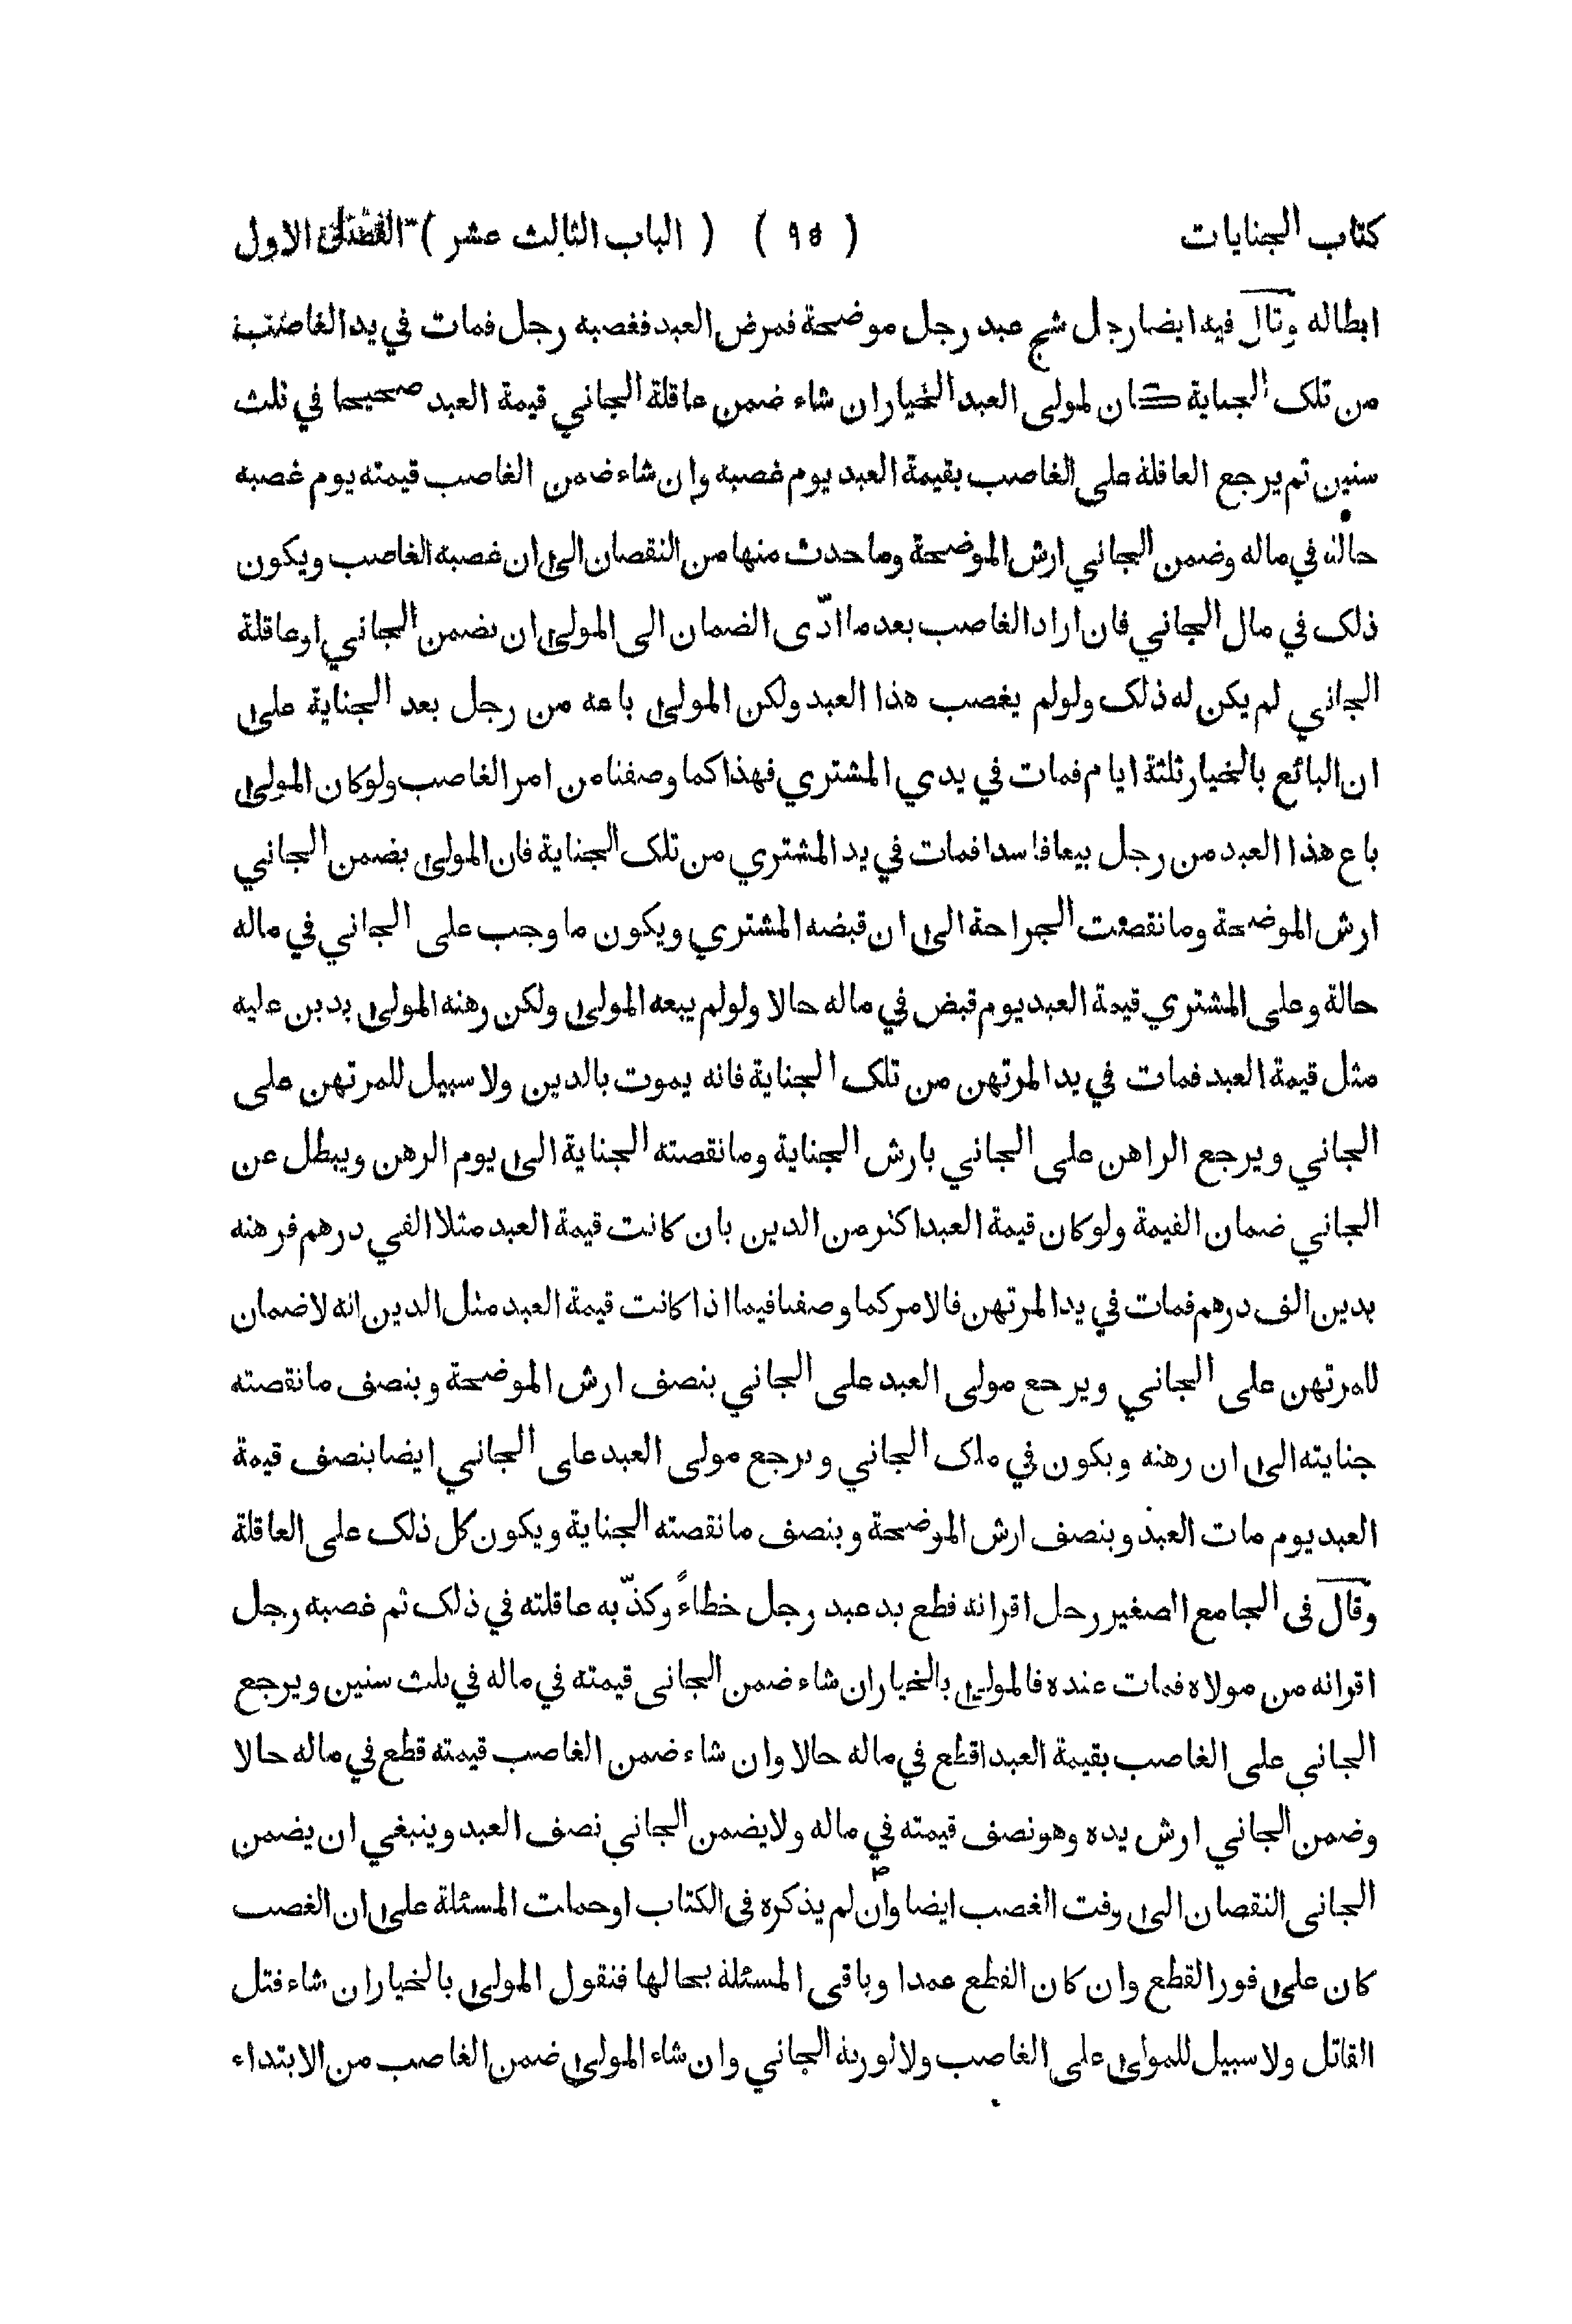 كتاب الجنايات ( ٩٥ ) ( الباب الثالث عشر ) الفصل الاول
ابطاله وقال فيه ايضا رجل شج عبد رجل موضحة فمرض العبد فغصبه رجل فمات في يد الغاصب
من تلك الجناية كان لمولى العبد الخيار ان شاء ضمن عاقلة الجاني قيمة العبد صحيحا في ثلث
سنين ثم يرجع العاقلة على الغاصب بقيمة العبد يوم غصبه وان شاء ضمن الغاصب قيمته يوم غصبه
حالة في ماله وضمن الجاني ارش الموضحة وما حدث منها من النقصان الى ان غصبه الغاصب ويكون
ذلك في مال الجاني فان اراد الغاصب بعد ما ادّى الضمان الى المولى ان يضمن الجاني او عاقلة
الجاني لم يكن له ذلك ولو لم يغصب هذا العبد ولكن المولى باعه من رجل بعد الجناية على
ان البائع بالخيار ثلثة ايام فمات في يدي المشتري فهذا كما وصفنا من امر الغاصب ولو كان المولى
باع هذا العبد من رجل بيعا فاسدا فمات في يد المشتري من تلك الجناية فان المولى يضمن الجاني
ارش الموضحة وما نقصت الجراحة الى ان قبضه المشتري ويكون ما وجب على الجاني في ماله
حالة وعلى المشتري قيمة العبد يوم قبض في ماله حالا ولو لم يبعه المولى ولكن رهنه المولى بدين عليه
مثل قيمة العبد فمات في يد المرتهن من تلك الجناية فانه يموت بالدين ولا سبيل للمرتهن على
الجاني ويرجع الراهن على الجاني بارش الجناية وما نقصته الجناية الى يوم الرهن ويبطل عن
الجاني ضمان القيمة ولو كان قيمة العبد اكثر من الدين بان كانت قيمة العبد مثلا الفي درهم فرهنه
بدين الف درهم فمات في يد المرتهن فالامر كما وصفنا فيما اذا كانت قيمة العبد مثل الدين انه لا ضمان
للمرتهن على الجاني ويرجع مولى العبد على الجاني بنصف ارش الموضحة وبنصف ما نقصته
جنايته الى ان رهنه ويكون في ملك الجاني ويرجع مولى العبد على الجاني ايضا بنصف قيمة
العبد يوم مات العبد وبنصف ارش الموضحة وبنصف ما نقصته الجناية ويكون كل ذلك على العاقلة
وقال فى الجامع الصغير رجل اقر انه قطع يد عبد رجل خطاءً وكذّبه عاقلته في ذلك ثم غصبه رجل
اقر انه من مولاه فمات عنده فالمولى بالخيار ان شاء ضمن الجانى قيمته في ماله في ثلث سنين ويرجع
الجاني على الغاصب بقيمة العبد اقطع في ماله حالا وان شاء ضمن الغاصب قيمته قطع في ماله حالا
وضمن الجاني ارش يده وهو نصف قيمته في ماله ولا يضمن الجاني نصف العبد وينبغي ان يضمن
الجانى النقصان الى وقت الغصب ايضا وان لم يذكره فى الكتاب او حملت المسئلة على ان الغصب
كان على فور القطع وان كان القطع عمدا وباقى المسئلة بحالها فنقول المولى بالخيار ان شاء قتل
القاتل ولا سبيل للمولى على الغاصب ولا لورثة الجاني وان شاء المولى ضمن الغاصب من الابتداء